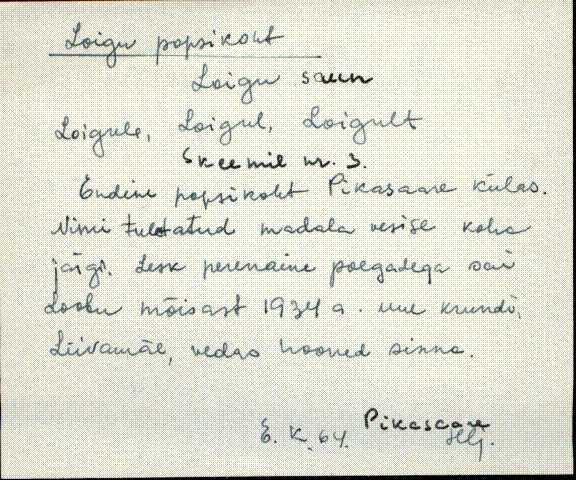 Loigu popsikoht
Loigu saun
Loigule, Loigul, Loigult
Skeemil nr. 3.
Endine popsikoht Pikasaare külas.
Nimi tuletatud madala vesise koha
järgi. Lesk perenaine poegadega sai
Loobu mõisast 1934 a. uue krundi,
Liivamäe, vedas hooned sinna.
E. K. 64. Pikasaare